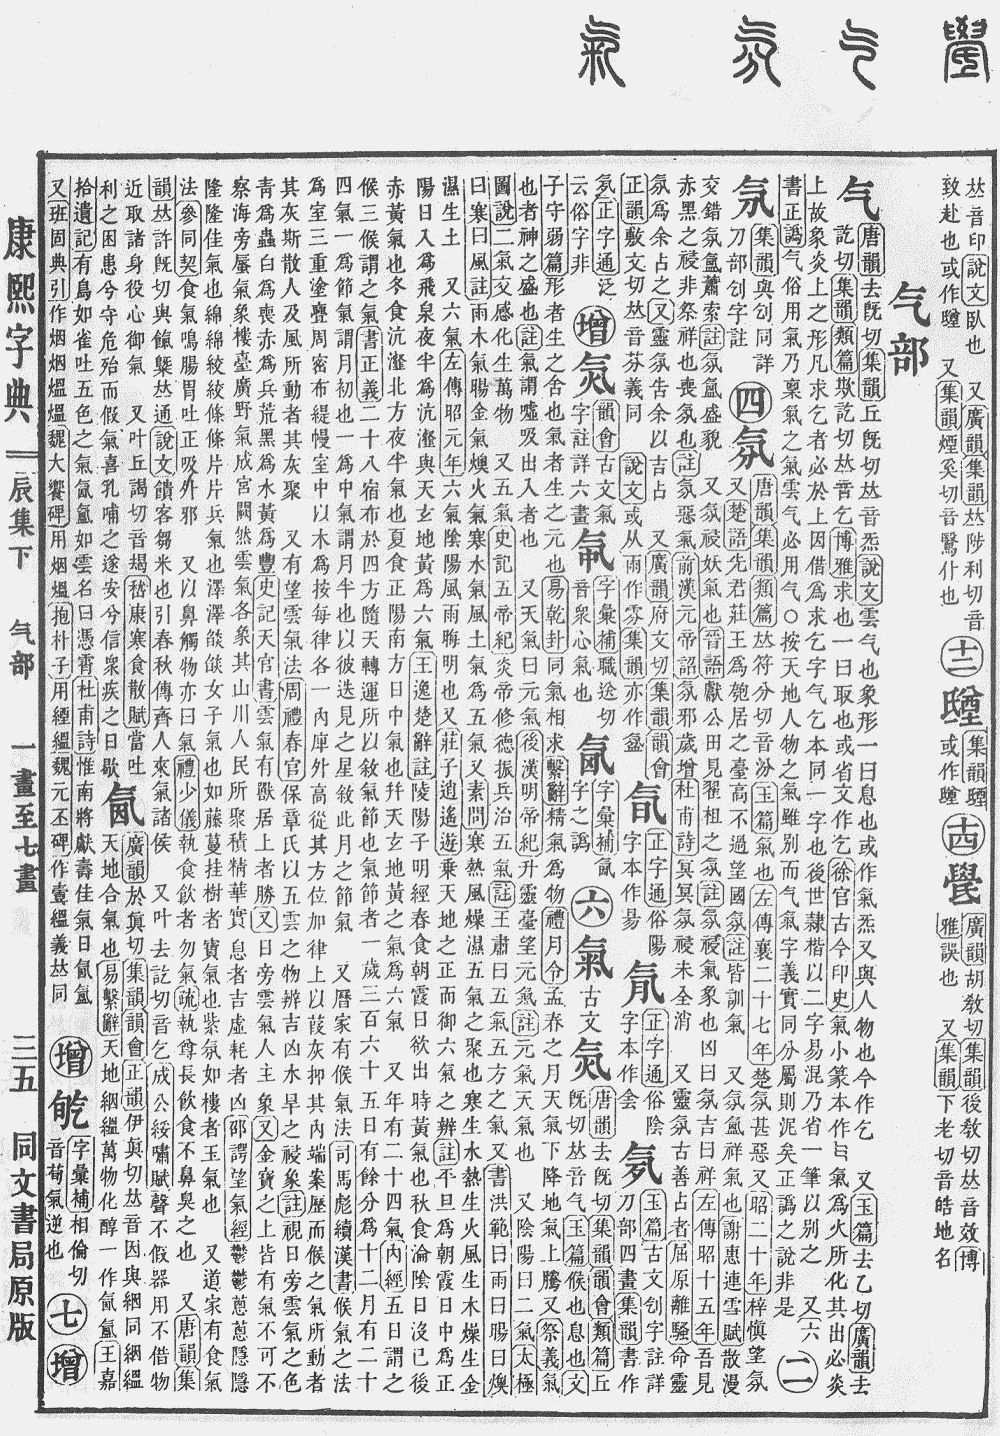 𠀤音印說文臥也 又廣韻集韻𠀤陟利切音
致赴也或作 又集韻煙奚切音鷖什也
十二
集韻
或作
十四
廣韻胡敎切集韻後敎切𠀤音效博
雅誤也 又集韻下老切音皓地名
气部
气
唐韻去旣切集韻丘旣切𠀤音炁說文雲气也象形一曰息也或作氣炁又與人物也今作乞 又玉篇去乙切廣韻去
訖切集韻類篇欺訖切𠀤音乞博雅求也一曰取也或省文作乞徐官古今印史氣小篆本作气氣爲火所化其出必炎
上故象炎上之形凡求乞者必於上因借爲求乞字气乞本同一字也後世隸楷以二字易混乃省一筆以别之 又六
書正譌气俗用氣乃稟氣之氣雲气必用气○按天地人物之氣雖别而气氣字義實同分屬則泥矣正譌之說非是
二
氖
集韻與刉同詳
刀部刉字註
四
氛
唐韻集韻類篇𠀤符分切音汾玉篇氣也左傳襄二十七年楚氛甚惡又昭二十年梓愼望氛
又楚語先君莊王爲匏居之臺高不過望國氛註皆訓氣 又氛氲祥氣也謝惠連雪賦散漫
交錯氛氲蕭索註氛氲盛貌 又氛祲妖氣也晉語獻公田見翟柤之氛註氛祲氣象也凶曰氛吉曰祥左傳昭十五年吾見
赤黑之祲非祭祥也喪氛也註氛惡氣前漢元帝詔氛邪歲增杜甫詩冥冥氛祲未全消 又靈氛古善占者屈原離騷命靈
氛爲余占之又靈氛吿余以吉占 又廣韻府文切集韻韻會
正韻敷文切𠀤音芬義同 說文或从雨作雰集韻亦作氳
氜
正字通俗陽
字本作昜
氞
正字通俗陰
字本作侌
氝
玉篇古文刉字註詳
刀部四畫集韻書作
気
正字通氾
云俗字非
增
炁
韻會古文氣
字註詳六畫
字彙補職送切
音衆心氣也
字彙補氤
字之譌
六
氣
古文
唐韻去旣切集韻韻會類篇丘
旣切𠀤音气玉篇候也息也文
子守弱篇形者生之舍也氣者生之元也易乾卦同氣相求繫辭精氣爲物禮月令孟春之月天氣下降地氣上騰又祭義氣
也者神之盛也註氣謂噓吸出入者也 又天氣曰元氣後漢明帝紀升靈臺望元氣註元氣天氣也 又陰陽曰二氣太極
圖說二氣交感化生萬物 又五氣史記五帝紀炎帝修德振兵治五氣註王肅曰五氣五方之氣又書洪範曰雨曰暘曰燠
曰寒曰風註雨木氣暘金氣燠火氣寒水氣風土氣爲五氣又素問寒熱風燥濕五氣之聚也寒生水熱生火風生木燥生金
濕生土 又六氣左傳昭元年六氣陰陽風雨晦明也又莊子逍遙遊乗天地之正而御六氣之辨註平旦爲朝霞日中爲正
陽日入爲飛泉夜半爲沆瀣與天玄地黃爲六氣王逸楚辭註陵陽子明經春食朝霞日欲出時黃氣也秋食淪陰日沒已後
赤黃氣也冬食沆瀣北方夜半氣也夏食正陽南方日中氣也幷天玄地黃之氣爲六氣 又年有二十四氣內經五日謂之
候三候謂之氣書正義二十八宿布於四方隨天轉運所以敘氣節也氣節者一歲三百六十五日有餘分爲十二月有二十
四氣一爲節氣謂月初也一爲中氣謂月半也以彼迭見之星敘此月之節氣 又曆家有候氣法司馬彪續漢書候氣之法
爲室三重塗釁周密布緹幔室中以木爲按每律各一內庳外高從其方位加律上以葭灰抑其內端案歷而候之氣所動者
其灰斯散人及風所動者其灰聚 又有望雲氣法周禮春官保章氏以五雲之物辨吉凶水旱之祲象註視日旁雲氣之色
靑爲蟲白爲喪赤爲兵荒黑爲水黃爲豐史記天官書雲氣有獸居上者勝又日旁雲氣人主象又金寶之上皆有氣不可不
察海旁蜃氣象樓臺廣野氣成宮闕然雲氣各象其山川人民所聚積精華實息者吉虛耗者凶邵諤望氣經鬱鬱蔥蔥隱隱
隆隆佳氣也綿綿絞絞條條片片兵氣也澤澤燄燄女子氣也如藤蔓挂樹者寶氣也紫氛如樓者玉氣也 又道家有食氣
法參同契食氣鳴腸胃吐正吸外邪 又以鼻觸物亦曰氣禮少儀執食飲者勿氣疏執尊長飮食不鼻臭之也 又唐韻集
韻𠀤許旣切與餼槩𠀤通說文饋客芻米也引春秋傳齊人來氣諸侯 又叶去訖切音乞成公綏嘯賦聲不假器用不借物
近取諸身役心御氣 又叶丘謁切音朅嵇康寒食散賦當吐
利之困患今守危殆而假氣喜孔哺之遂安兮信衆疾之日歇
氤
廣韻於眞切集韻韻會正韻伊眞切𠀤音因與絪同絪緼
天地合氣也易繫辭天地絪緼萬物化醇一作氤氲王嘉
拾遺記有鳥如雀吐五色之氣氤氲如雲名曰憑霄杜甫詩惟南將獻壽佳氣日氤氲
又班固典引作烟烟熅熅魏大饗碑用烟熅抱朴子用緸緼魏元丕碑作壹緼義𠀤同
增
㲴
字彙補相倫切
音荀氣逆也
七
增
康熙字典
辰集下 气部 一畫至七畫
三五
同文書局原版